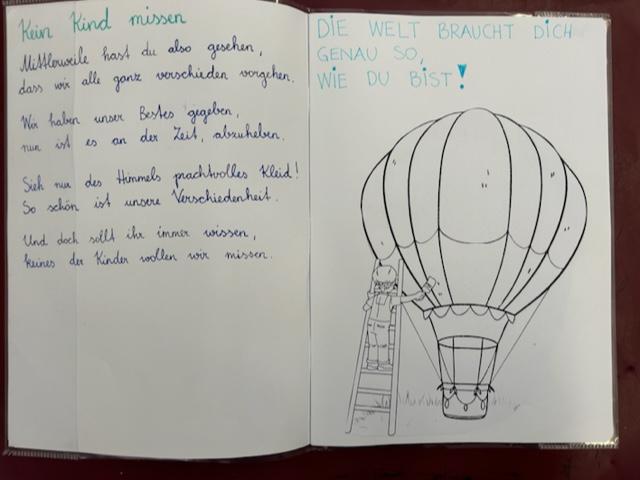 Kein Kind missen
Mittlerweile hast du also gesehen,
dass wir alle ganz verschieden vorgehen.
Wir haben unser Bestes gegeben,
nun ist es an der Zeit, abzuheben.
Sieh nur des Himmels prachtvolles Kleid!
So schön ist unsere Verschiedenheit.
Und doch sollt ihr immer wissen,
keines der Kinder wollen wir missen.
DIE WELT BRAUCHT DICH
GENAU SO,
WIE DU BIST!